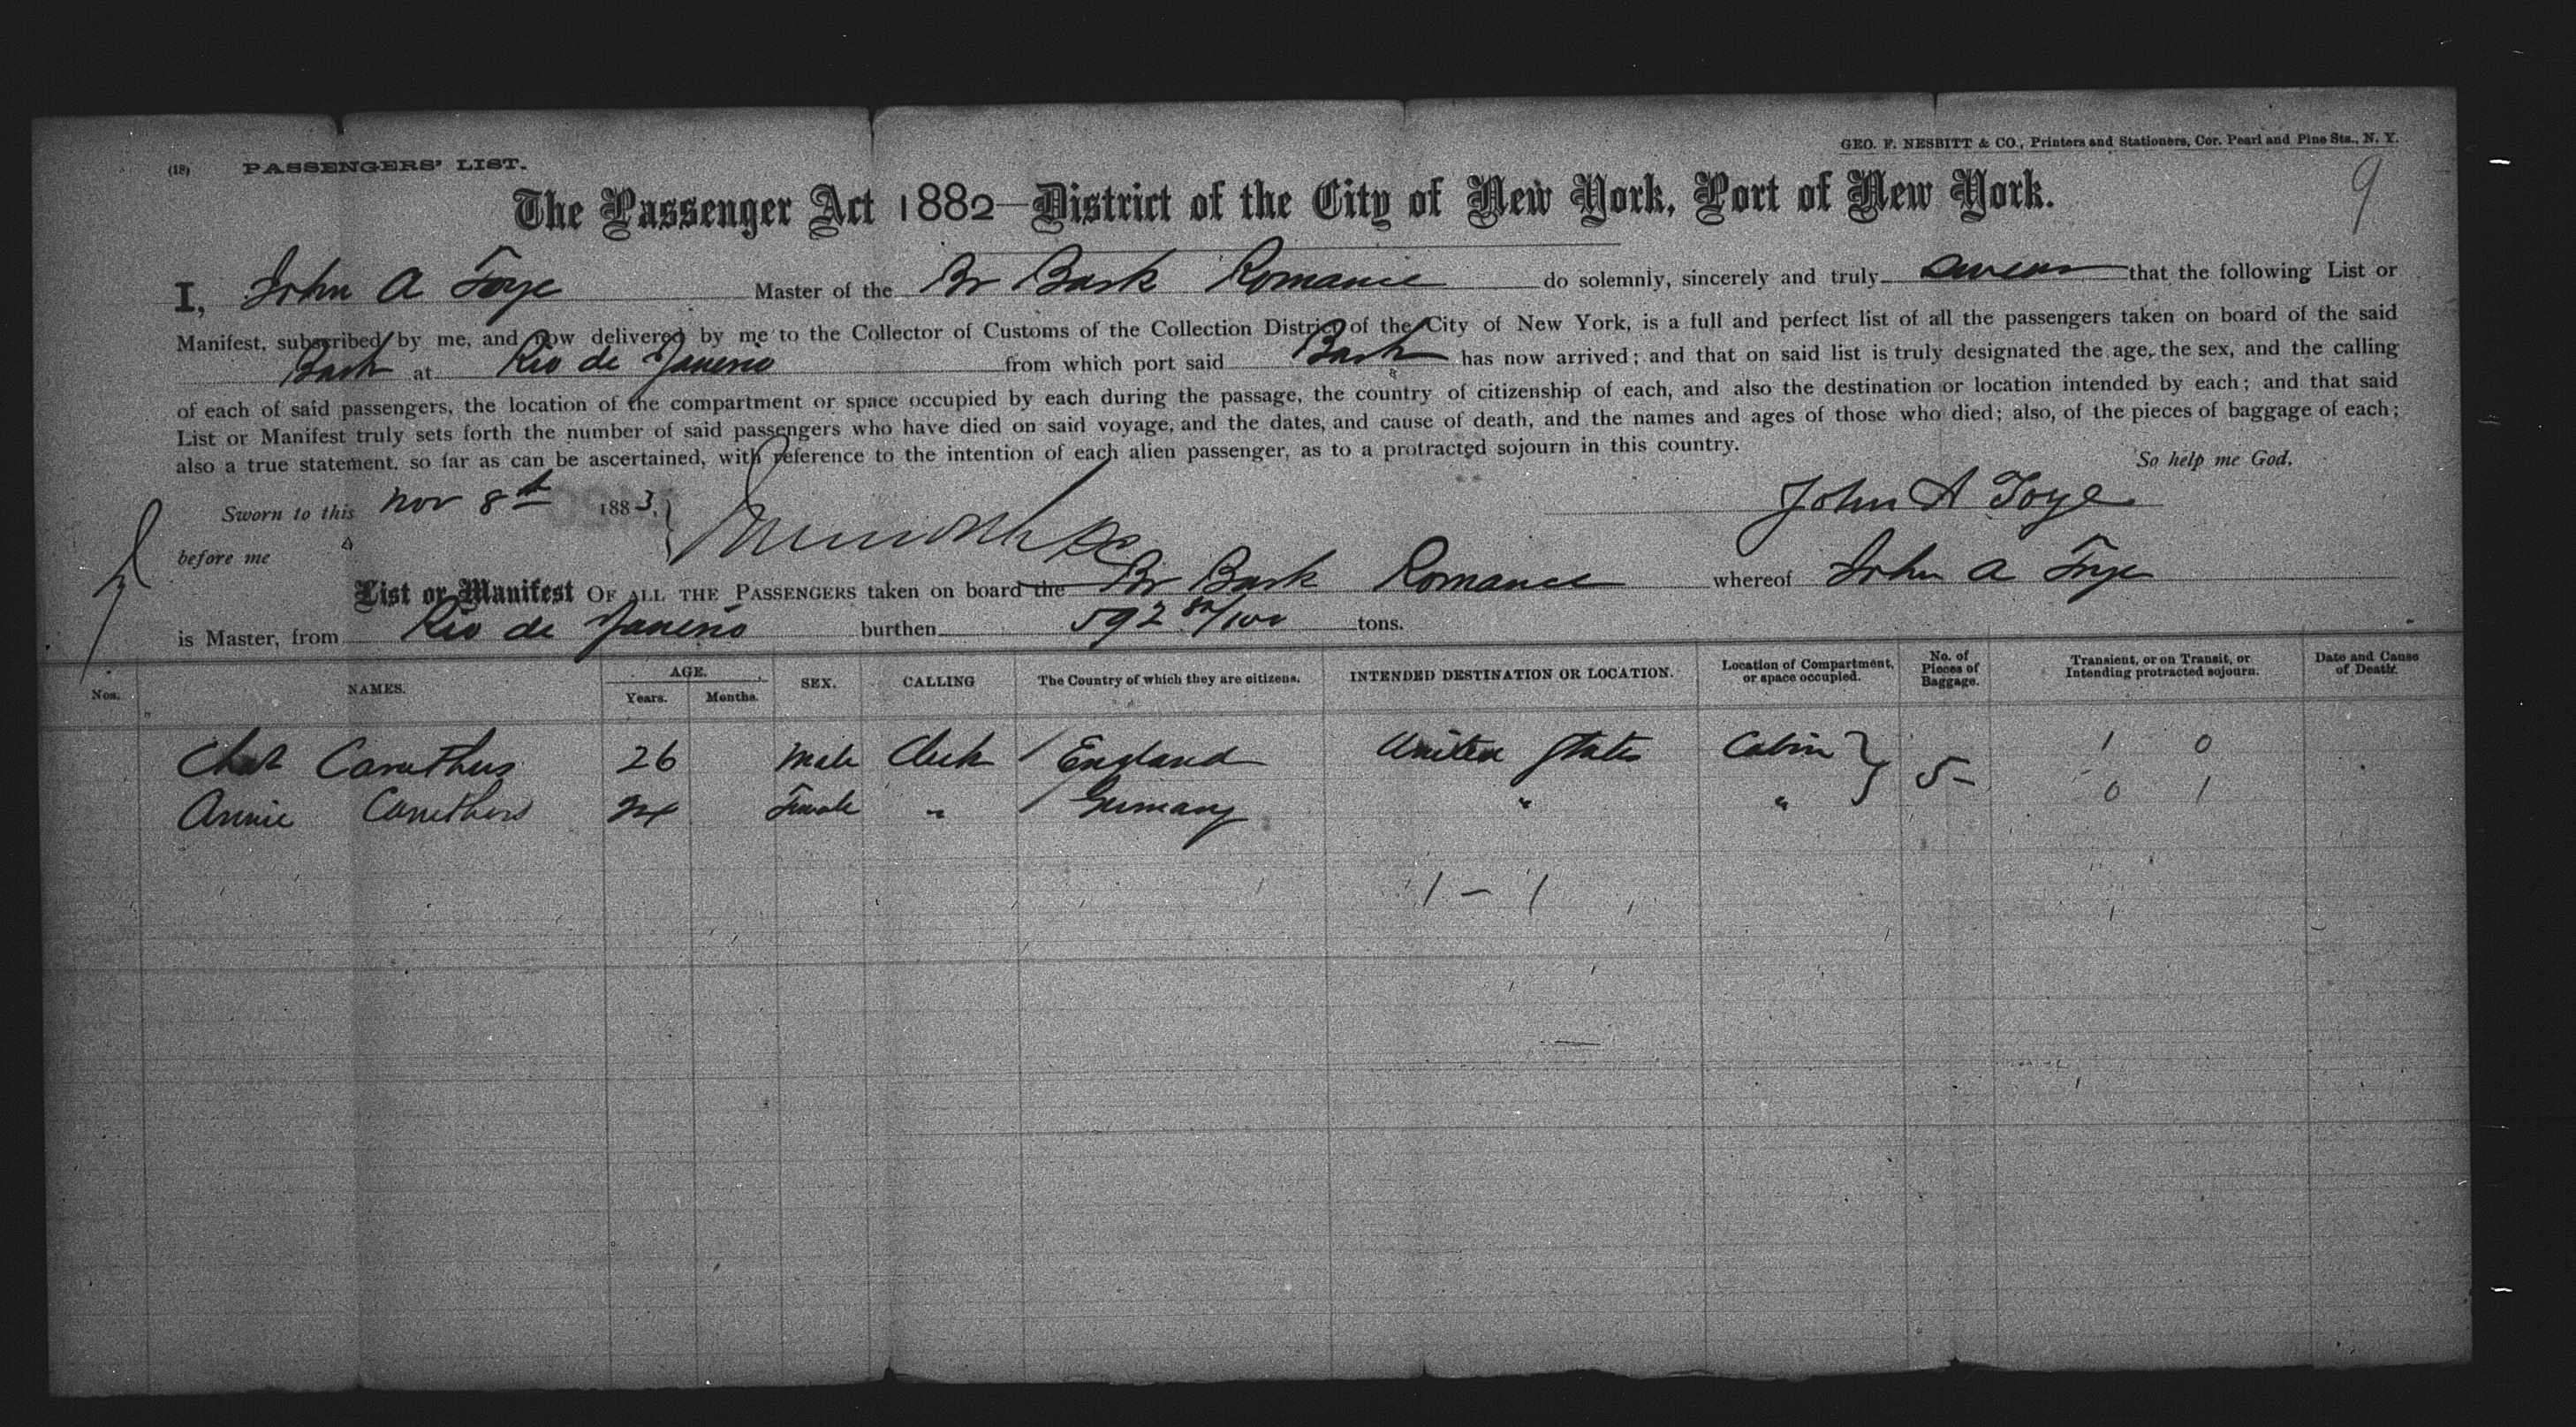 GEO. F. NESBITT & CO., Printers and Stationers, Cor. Pearl and Pine Sts., N. Y.
(18) PASSENGERS' LIST.
9
The Passenger Act 1882—District of the City of New York, Port of New York.
I, John A Foye Master of the Br Bark Romance do solemnly, sincerely and truly swear that the following List or
Manifest, subscribed by me, and now delivered by me to the Collector of Customs of the Collection District of the City of New York, is a full and perfect list of all the passengers taken on board of the said
Bark at Rio de Janerio from which port said Bark has now arrived; and that on said list is truly designated the age, the sex, and the calling
of each of said passengers, the location of the compartment or space occupied by each during the passage, the country of citizenship of each, and also the destination or location intended by each; and that said
List or Manifest truly sets forth the number of said passengers who have died on said voyage, and the dates, and cause of death, and the names and ages of those who died; also, of the pieces of baggage of each;
also a true statement. so far as can be ascertained, with reference to the intention of each alien passenger, as to a protracted sojourn in this country.
So help me God.
Sworn to this Nov 8th 1883,
John A Foye
before me
List or Manifest OF ALL THE PASSENGERS taken on board the Br Bark Romance whereof John A Foye
is Master, from Rio de Janerio burthen 592 82/100 tons.
Nos. NAMES. AGE. Years. Months. SEX. CALLING The Country of which they are citizens. INTENDED DESTINATION OR LOCATION. Location of Compartment, or space occupied. No. of Pieces of Baggage. Transient, or on Transit, or Intending protracted sojourn. Date and Cause of Death.
Chas Caruthers 26 Male Clerk / England United States Cabin } 5 1 0
Annie Caruthers 24 Female " / Germany " " 0 1
1 - 1